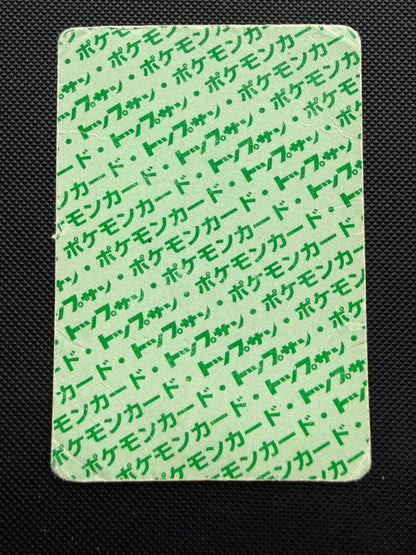 ・ポケモンカード
トップサン・ポケモンカード・
ード・トップサン・ポケモンカード
ンカード・トップサン・ポケモン
ケモンカード・トップサン・ポケ
・ポケモンカード・トップサン・
トップサン・ポケモンカード・トップサン
・トップサン・ポケモンカード・
ード・トップサン・ポケモンカード
ンカード・トップサン・ポケモン
ケモンカード・トップサン・ポケ
・ポケモンカード・トップサン・
ポケモンカード・トップサン
・ポケモンカード